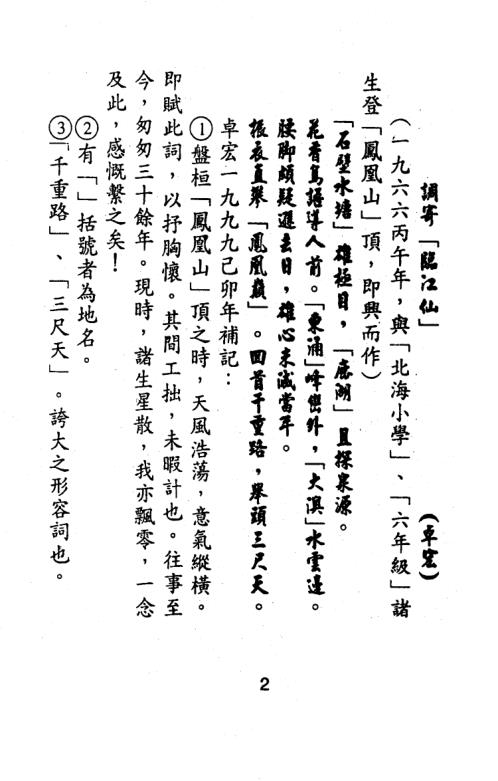 調寄「臨江仙」 (卓宏)
(一九六六丙午年，與「北海小學」、「六年級」諸
生登「鳳凰山」頂，即興而作)
「石壁水塘」確極目，「鹿湖」且探泉源。
花香鳥語導人前。「東涌」峰巒外，「大澳」水雲邊。
腰脚頗疑遜去日，雄心未減當年。
振衣直攀「鳳凰巔」。回首千重路，舉頭三尺天。
卓宏一九九九己卯年補記：
①盤桓「鳳凰山」頂之時，天風浩蕩，意氣縱橫。
即賦此詞，以抒胸懷。其間工拙，未暇計也。往事至
今，匆匆三十餘年。現時，諸生星散，我亦飄零，一念
及此，感慨繫之矣！
②有「」括號者為地名。
③「千重路」、「三尺天」。誇大之形容詞也。
2